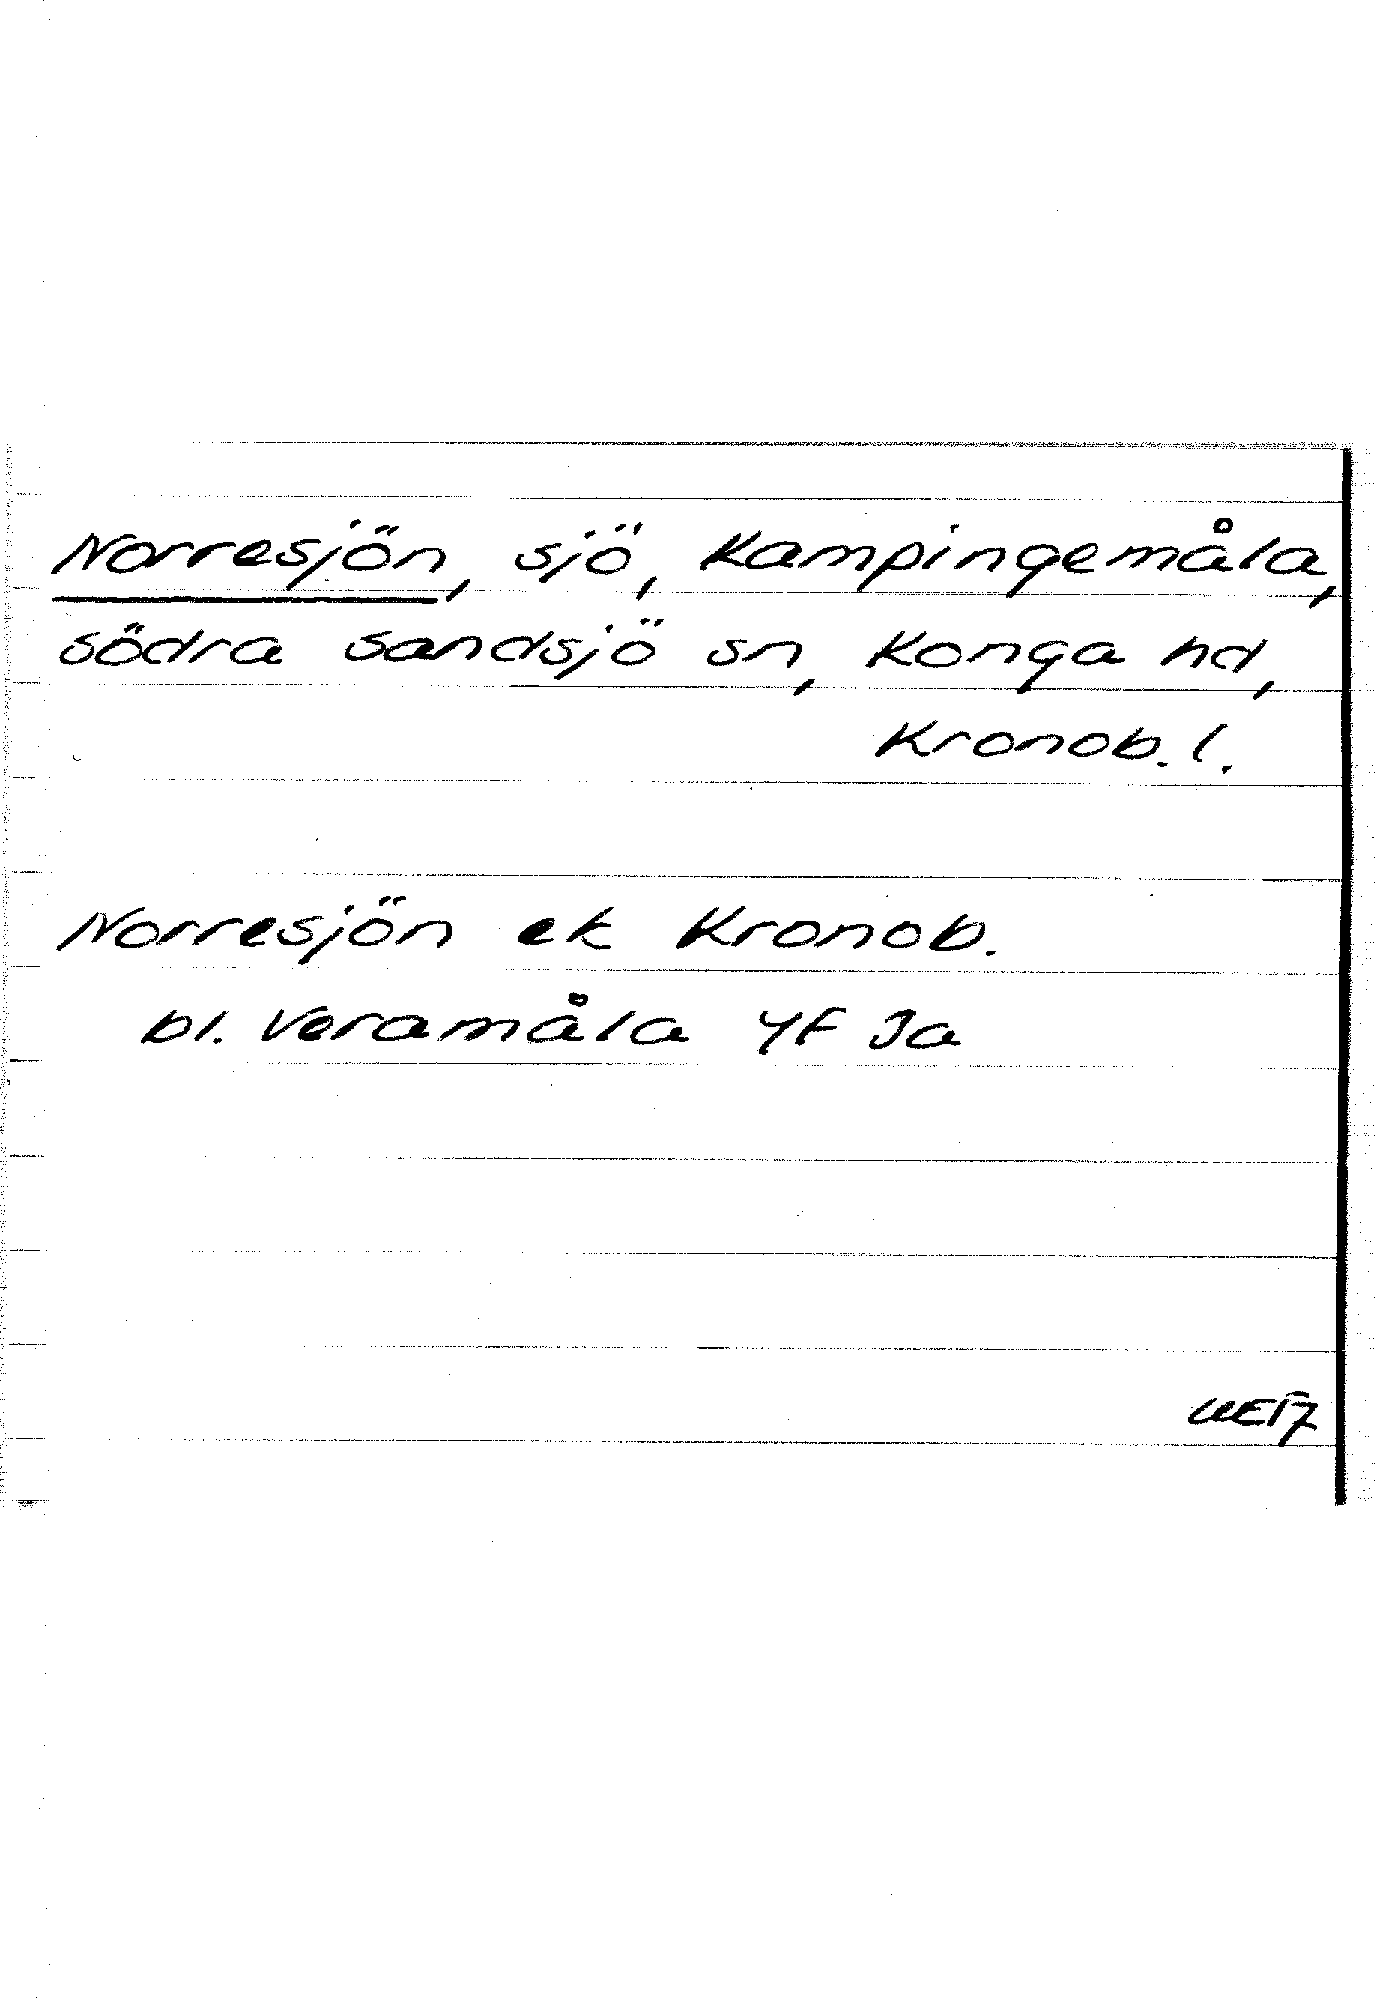 Norresjön, sjö, Kampingemåla,
Södra Sandsjö sn, Konga hd,
Kronob. l.
Norresjön ek Kronob.
bl. Veramåla 4F Ja